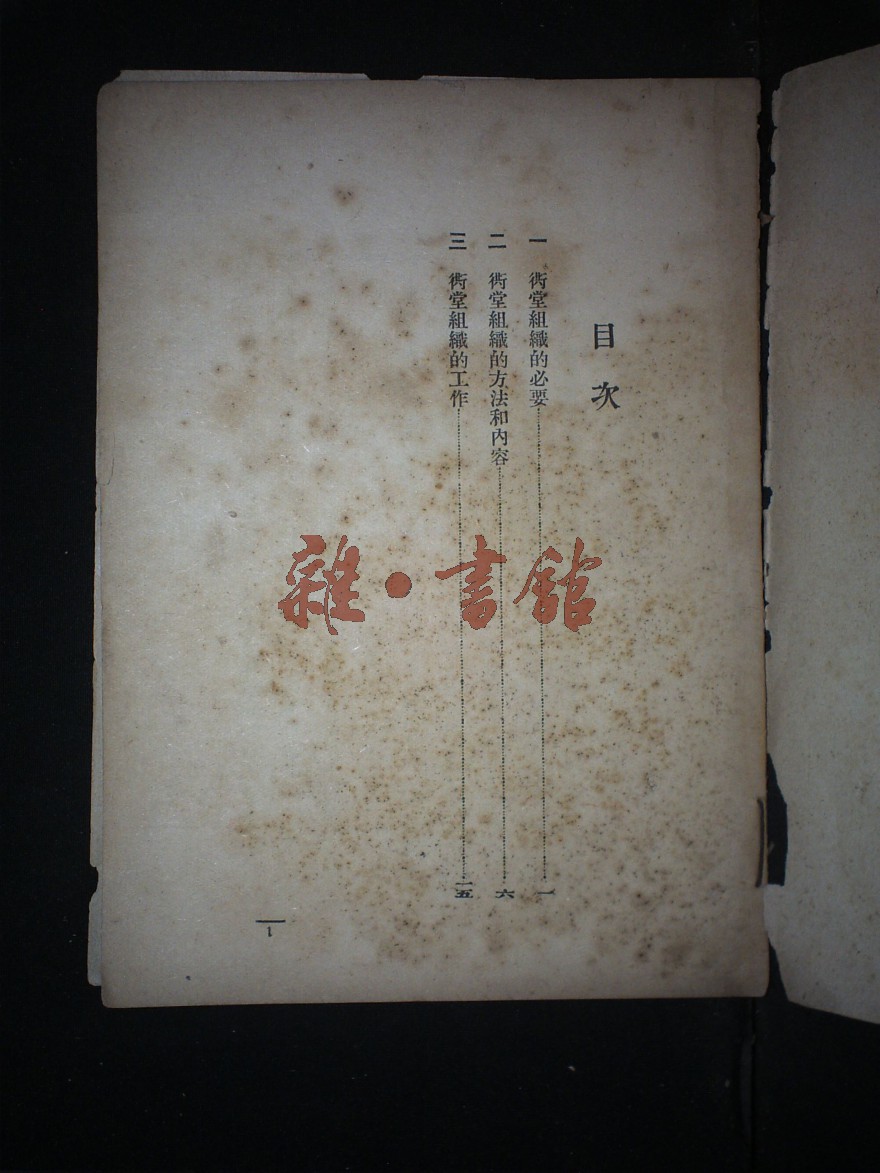 目次
一 衖堂組織的必要……一
二 衖堂組織的方法和內容……六
三 衖堂組織的工作……一五
1
雜·書館